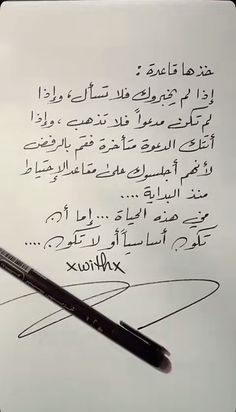 خذها قاعدة :
إذا لم يخبروك فلا تسأل ، وإذا
لم تكن مدعواً فلا تذهب ، وإذا
أتتك الدعوة متأخرة فقم بالرفض
لأنهم أجلسوك على مقاعد الإحتياط
منذ البداية ....
في هذه الحياة ... إما أن
تكون أساسياً أو لا تكون ....
xwithx